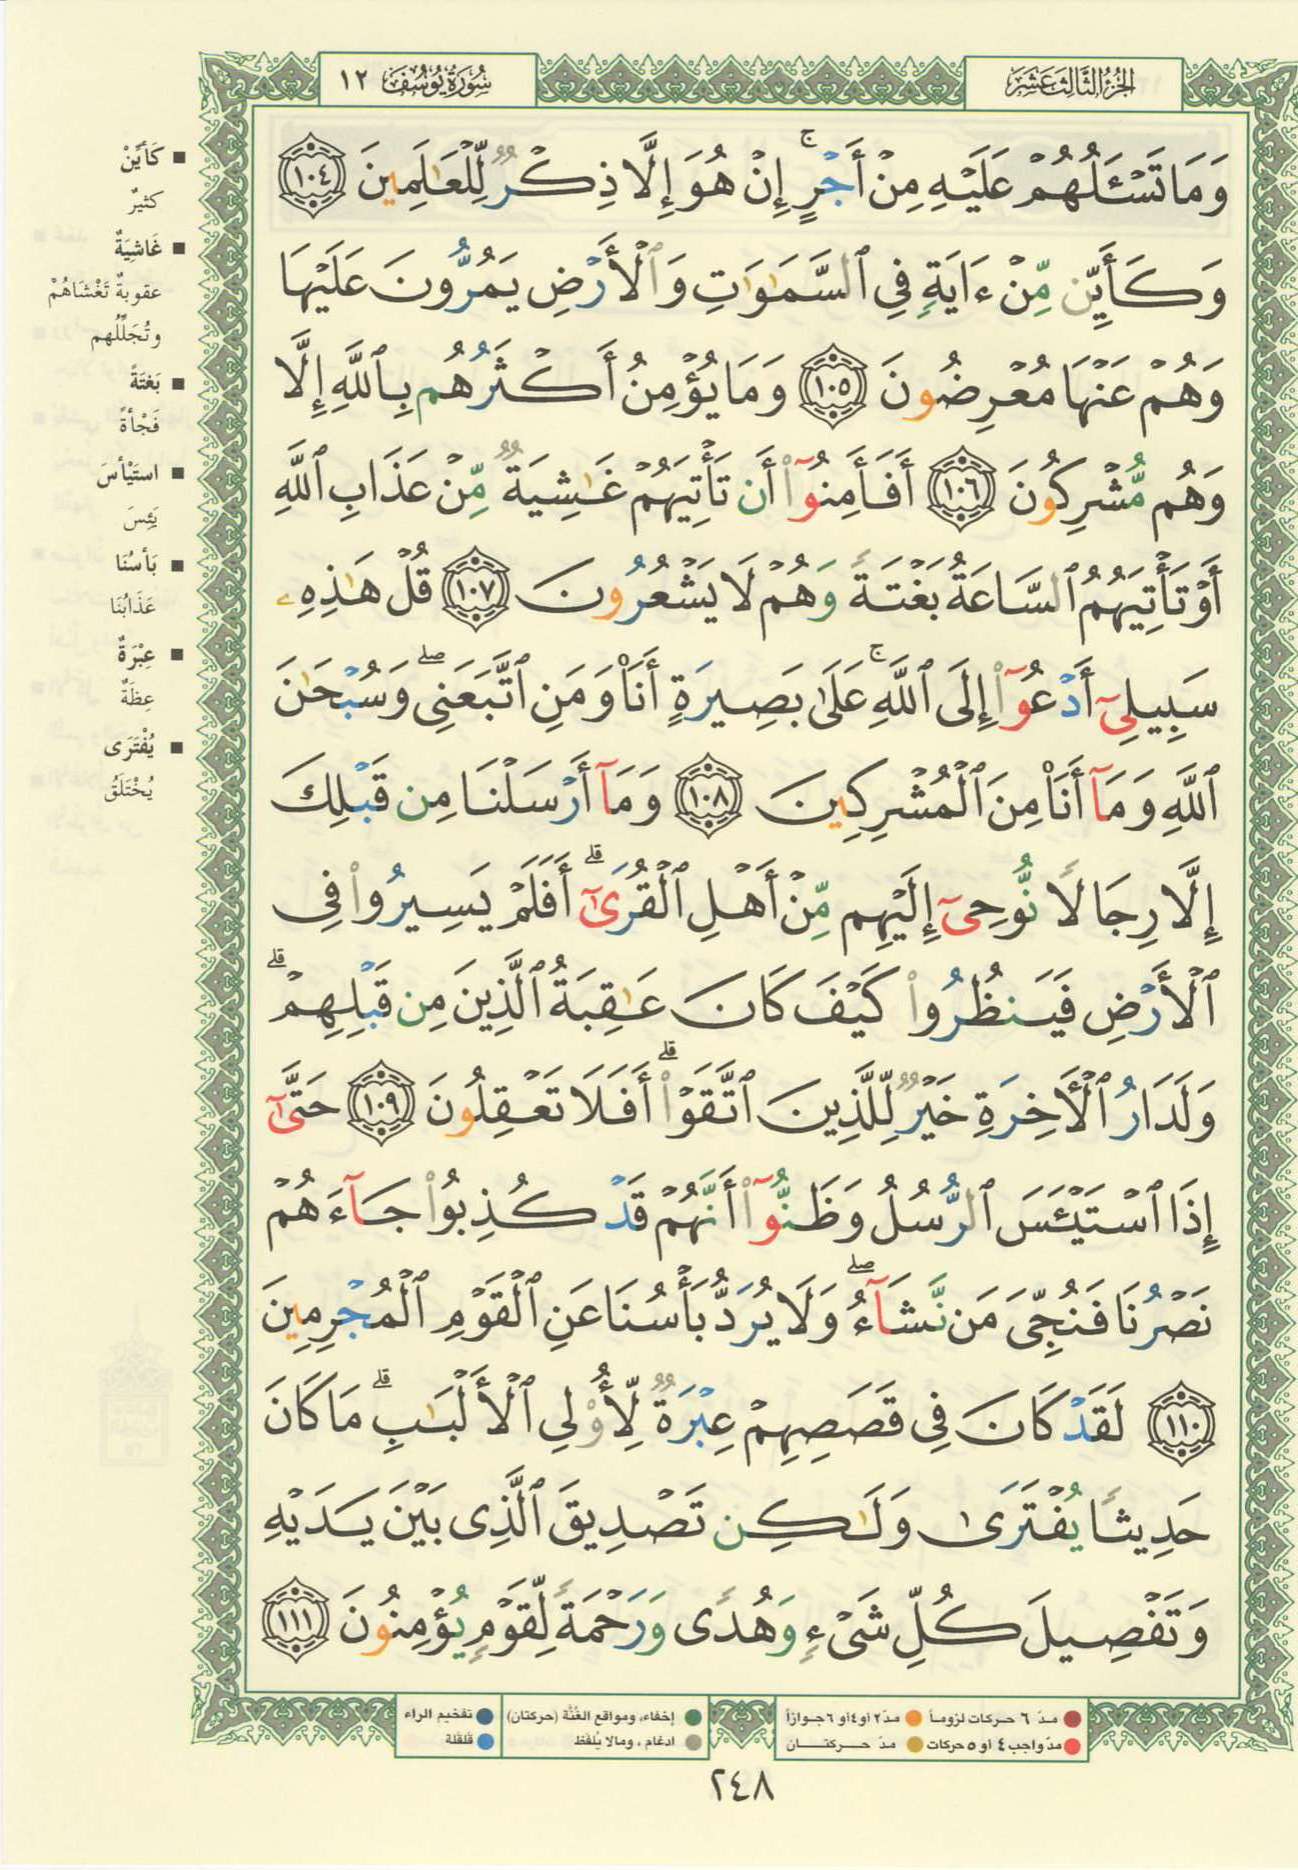 الجزء الثالث عشر
سورة يوسف ١٢
وَمَا تَسْـَٔلُهُمْ عَلَيْهِ مِنْ أَجْرٍ ۚ إِنْ هُوَ إِلَّا ذِكْرٌ لِّلْعَـٰلَمِينَ ١٠٤
وَكَأَيِّن مِّنْ ءَايَةٍ فِى ٱلسَّمَـٰوَٰتِ وَٱلْأَرْضِ يَمُرُّونَ عَلَيْهَا
وَهُمْ عَنْهَا مُعْرِضُونَ ١٠٥ وَمَا يُؤْمِنُ أَكْثَرُهُم بِٱللَّهِ إِلَّا
وَهُم مُّشْرِكُونَ ١٠٦ أَفَأَمِنُوٓا۟ أَن تَأْتِيَهُمْ غَـٰشِيَةٌ مِّنْ عَذَابِ ٱللَّهِ
أَوْ تَأْتِيَهُمُ ٱلسَّاعَةُ بَغْتَةً وَهُمْ لَا يَشْعُرُونَ ١٠٧ قُلْ هَـٰذِهِۦ
سَبِيلِىٓ أَدْعُوٓا۟ إِلَى ٱللَّهِ ۚ عَلَىٰ بَصِيرَةٍ أَنَا۠ وَمَنِ ٱتَّبَعَنِى ۖ وَسُبْحَـٰنَ
ٱللَّهِ وَمَآ أَنَا۠ مِنَ ٱلْمُشْرِكِينَ ١٠٨ وَمَآ أَرْسَلْنَا مِن قَبْلِكَ
إِلَّا رِجَالًا نُّوحِىٓ إِلَيْهِم مِّنْ أَهْلِ ٱلْقُرَىٰٓ ۗ أَفَلَمْ يَسِيرُوا۟ فِى
ٱلْأَرْضِ فَيَنظُرُوا۟ كَيْفَ كَانَ عَـٰقِبَةُ ٱلَّذِينَ مِن قَبْلِهِمْ ۗ
وَلَدَارُ ٱلْـَٔاخِرَةِ خَيْرٌ لِّلَّذِينَ ٱتَّقَوْا۟ ۗ أَفَلَا تَعْقِلُونَ ١٠٩ حَتَّىٰٓ
إِذَا ٱسْتَيْـَٔسَ ٱلرُّسُلُ وَظَنُّوٓا۟ أَنَّهُمْ قَدْ كُذِبُوا۟ جَآءَهُمْ
نَصْرُنَا فَنُجِّىَ مَن نَّشَآءُ ۖ وَلَا يُرَدُّ بَأْسُنَا عَنِ ٱلْقَوْمِ ٱلْمُجْرِمِينَ
١١٠ لَقَدْ كَانَ فِى قَصَصِهِمْ عِبْرَةٌ لِّأُو۟لِى ٱلْأَلْبَـٰبِ ۗ مَا كَانَ
حَدِيثًا يُفْتَرَىٰ وَلَـٰكِن تَصْدِيقَ ٱلَّذِى بَيْنَ يَدَيْهِ
وَتَفْصِيلَ كُلِّ شَىْءٍ وَهُدًى وَرَحْمَةً لِّقَوْمٍ يُؤْمِنُونَ ١١١
كَأَيِّنْ
كثيرٌ
غَاشِيَةٌ
عقوبةٌ تَغْشَاهُمْ
وتُجَلِّلُهم
بَغتَةً
فَجْأةً
استَيْأسَ
يَئِسَ
بَأسُنَا
عَذَابُنَا
عِبْرَةٌ
عِظَةٌ
يُفْتَرَى
يُخْتَلَقُ
مدّ ٦ حركات لزوماً مدّ ٢ أو٤ أو ٦ جوازاً
مدّ واجب ٤ أو ٥ حركات مدّ حركتان
إخفاء، ومواقع الغُنَّة (حركتان)
ادغام ، ومالا يُلفَظ
تفخيم الراء
قلقلة
٢٤٨